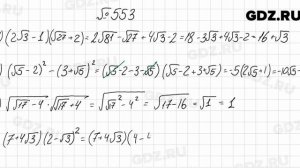 GDZ.RU
№553
) (2√3 − 1)(√27 + 2) = 2√81 − √27 + 4√3 − 2 = 18 − 3√3 + 4√3 − 2 = 16 + √3
) (√5 − 2)² − (3 + √5)² = (√5 − 2 − 3 − √5) (√5 − 2 + 3 + √5) = −5(2√5 + 1) = −10√5 −
) √√17 − 4 · √√17 + 4 = √√17² − 4² = √17 − 16 = √1 = 1
(7 + 4√3)(2 − √3)² = (7 + 4√3)(4 −